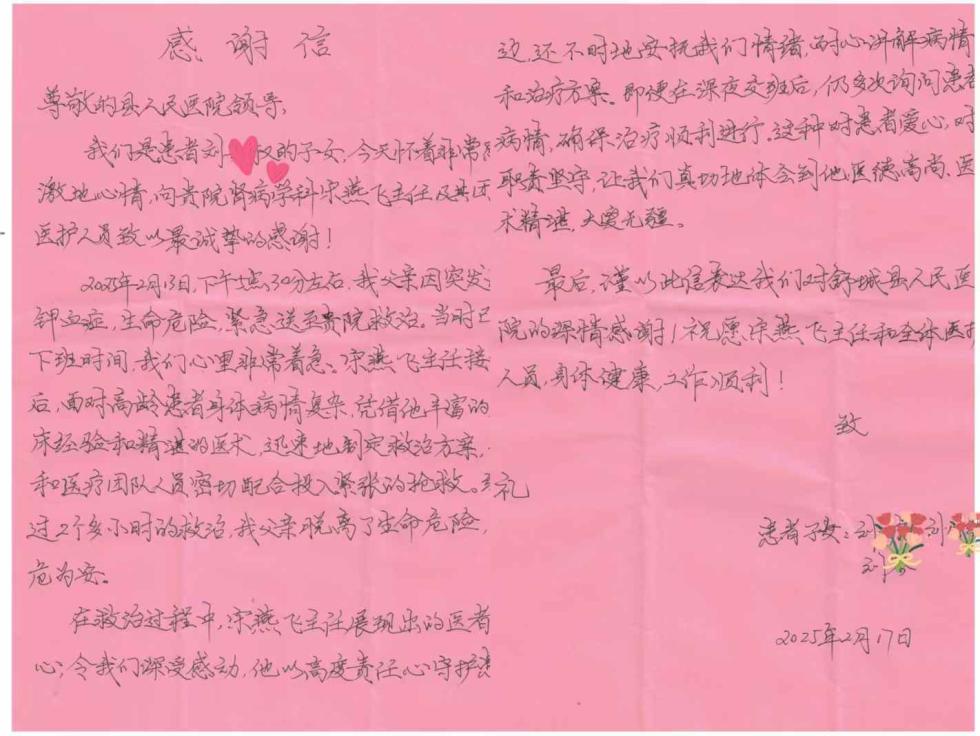 感谢信
尊敬的县人民医院领导,
我们是患者刘 权的子女,今天怀着非常
激地心情,向贵院肾病学科宋燕飞主任及其团
医护人员致以最诚挚的感谢!
2025年2月13日,下午5点30分左右,我父亲因突发
钾血症,生命危险,紧急送至贵院救治。当时已
下班时间,我们心里非常着急。宋燕飞主任接
后,面对高龄患者身体病情复杂,凭借他丰富的
床经验和精湛的医术,迅速地制定救治方案,
和医疗团队人员密切配合投入紧张的抢救。
过2个多小时的救治,我父亲脱离了生命危险,
危为安。
在救治过程中,宋燕飞主任展现出的医者
心,令我们深受感动,他以高度责任心守护
边,还不时地安抚我们情绪,耐心讲解病情
和治疗方案。即便在深夜交班后,仍多次询问患者
病情,确保治疗顺利进行,这种对患者爱心,对
职责坚守,让我们真切地体会到他医德高尚、医
术精湛,大爱无疆。
最后,谨以此信表达我们对舒城县人民医
院的深情感谢!祝愿宋燕飞主任和全体医
人员,身体健康,工作顺利!
致
礼
患者子女:刘 刘
刘
2025年2月17日